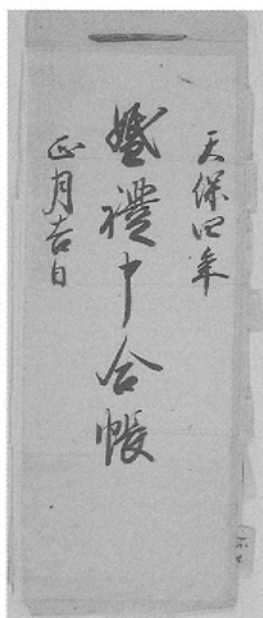 天保四年
婚禮申合帳
正月吉日